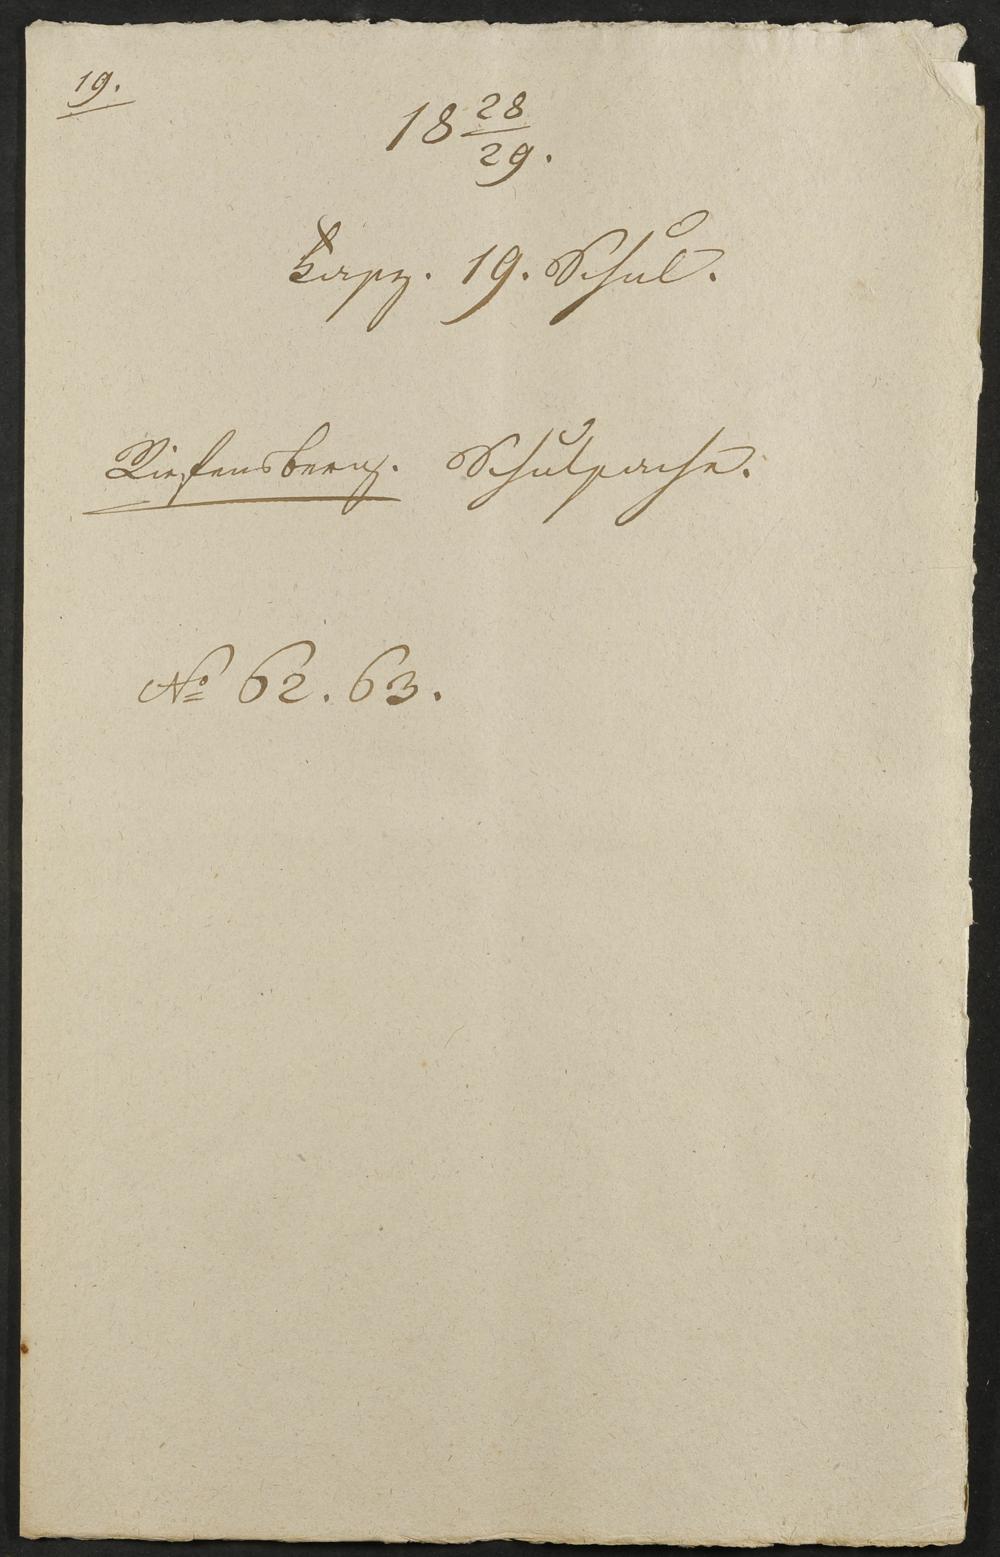 19.
18 28/29.
Fasz. 19. Schul.
Riefensberg. Schulsache.
No 62. 63.